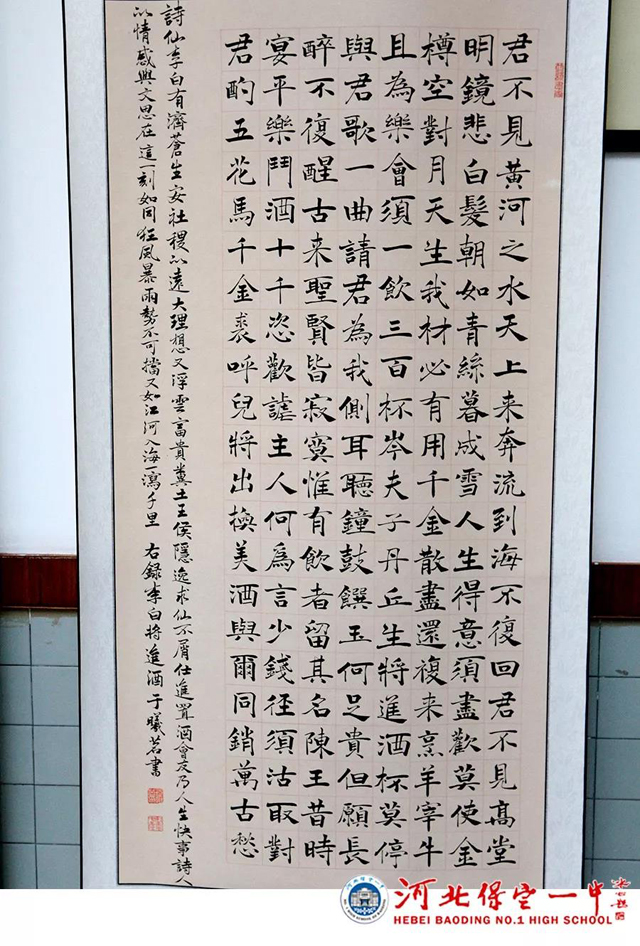 君不見黃河之水天上来奔流到海不復回君不見高堂
明鏡悲白髮朝如青絲暮成雪人生得意須盡歡莫使金
樽空對月天生我材必有用千金散盡還複来烹羊宰牛
且為樂會須一飲三百杯岑夫子丹丘生將進酒杯莫停
與君歌一曲請君為我側耳聽鐘鼓饌玉何足貴但願長
醉不復醒古来聖賢皆寂寞惟有飲者留其名陳王昔時
宴平樂鬥酒十千恣歡謔主人何為言少錢径須沽取對
君酌五花馬千金裘呼兒將出換美酒與爾同銷萬古愁
詩仙李白有濟蒼生安社稷以遠大理想又浮雲富貴糞土王侯隱逸求仙不屑仕進置酒會友乃人生快事詩人
以情感興文思在這一刻如同狂風暴雨勢不可擋又如江河入海一瀉千里 右錄李白將進酒 于曦茗書
河北保定一中
HEBEI BAODING NO.1 HIGH SCHOOL